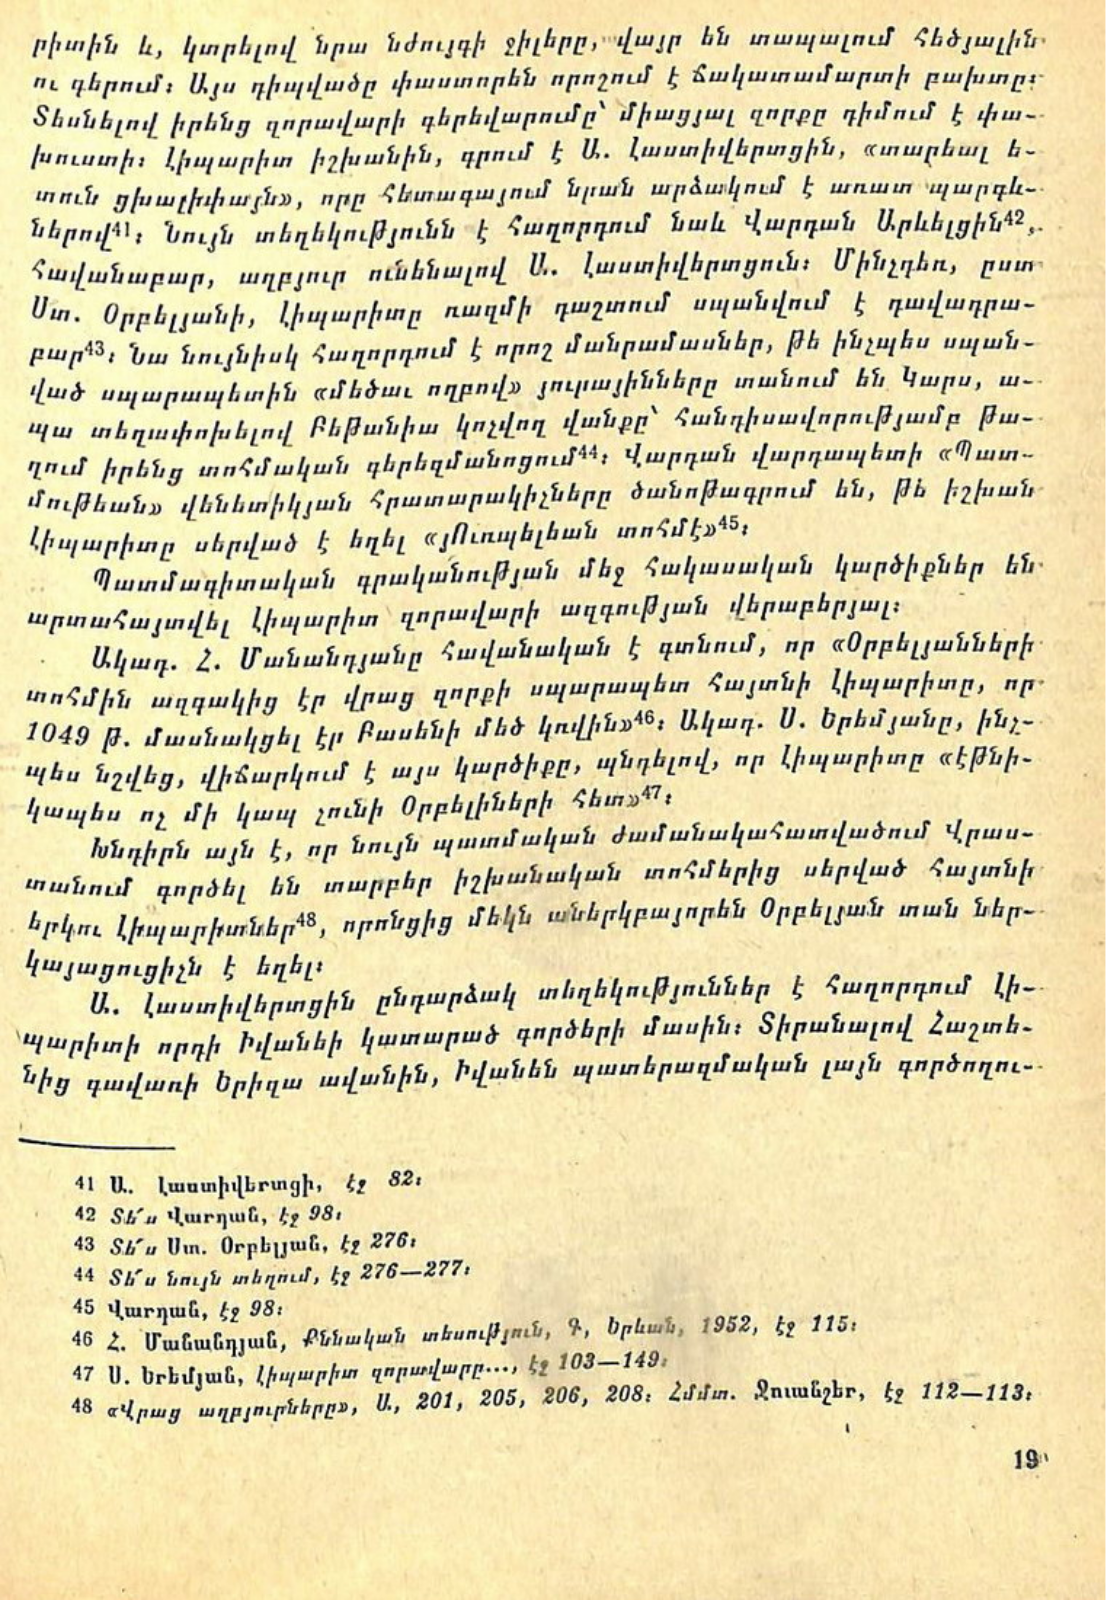 րիտին և, կտրելով նրա նժույգի ջիլերը, վայր են տապալում հեծյալին
ու գերում։ Այս դիպվածը փաստորեն որոշում է ճակատամարտի բախտը։
Տեսնելով իրենց զորավարի գերեվարումը՝ միացյալ զորքը դիմում է փա-
խուստի։ Լիպարիտ իշխանին, գրում է Ա. Լաստիվերտցին, «տարեալ ե-
տուն ցխալիփայն», որը հետագայում նրան արձակում է առատ պարգև-
ներով41։ Նույն տեղեկությունն է հաղորդում նաև Վարդան Արևելցին42,
հավանաբար, աղբյուր ունենալով Ա. Լաստիվերտցուն։ Մինչդեռ, ըստ
Ստ. Օրբելյանի, Լիպարիտը ռազմի դաշտում սպանվում է դավադրա-
բար43։ Նա նույնիսկ հաղորդում է որոշ մանրամասներ, թե ինչպես սպան-
ված սպարապետին «մեծաւ ողբով» յուրայինները տանում են Կարս, ա-
պա տեղափոխելով Բեթանիա կոչվող վանքը՝ հանդիսավորությամբ թա-
ղում իրենց տոհմական գերեզմանոցում44։ Վարդան վարդապետի «Պատ-
մութեան» վենետիկյան հրատարակիչները ծանոթագրում են, թե իշխան
Լիպարիտը սերված է եղել «յՈւռպելեան տոհմէ»45։
Պատմագիտական գրականության մեջ հակասական կարծիքներ են
արտահայտվել Լիպարիտ զորավարի ազգության վերաբերյալ։
Ակադ. Հ. Մանանդյանը հավանական է գտնում, որ «Օրբելյանների
տոհմին ազգակից էր վրաց զորքի սպարապետ հայտնի Լիպարիտը, որ
1049 թ. մասնակցել էր Բասենի մեծ կռվին»46։ Ակադ. Ս. Երեմյանը, ինչ-
պես նշվեց, վիճարկում է այս կարծիքը, պնդելով, որ Լիպարիտը «էթնի-
կապես ոչ մի կապ չունի Օրբելիների հետ»47։
Խնդիրն այն է, որ նույն պատմական ժամանակահատվածում Վրաս-
տանում գործել են տարբեր իշխանական տոհմերից սերված հայտնի
երկու Լիպարիտներ48, որոնցից մեկն աներկբայորեն Օրբելյան տան ներ-
կայացուցիչն է եղել։
Ա. Լաստիվերտցին ընդարձակ տեղեկություններ է հաղորդում Լի-
պարիտի որդի Իվանեի կատարած գործերի մասին։ Տիրանալով Հաշտե-
նից գավառի Երիզա ավանին, Իվանեն պատերազմական լայն գործողու-
41 Ա. Լաստիվերտցի, էջ 82։
42 Տե՛ս Վարդան, էջ 98։
43 Տե՛ս Ստ. Օրբելյան, էջ 276։
44 Տե՛ս նույն տեղում, էջ 276—277։
45 Վարդան, էջ 98։
46 Հ. Մանանդյան, Քննական տեսություն, Գ, Երևան, 1952, էջ 115։
47 Ս. Երեմյան, Լիպարիտ զորավարը..., էջ 103—149։
48 «Վրաց աղբյուրները», Ա, 201, 205, 206, 208։ Հմմտ. Ջուանշեր, էջ 112—113։
19